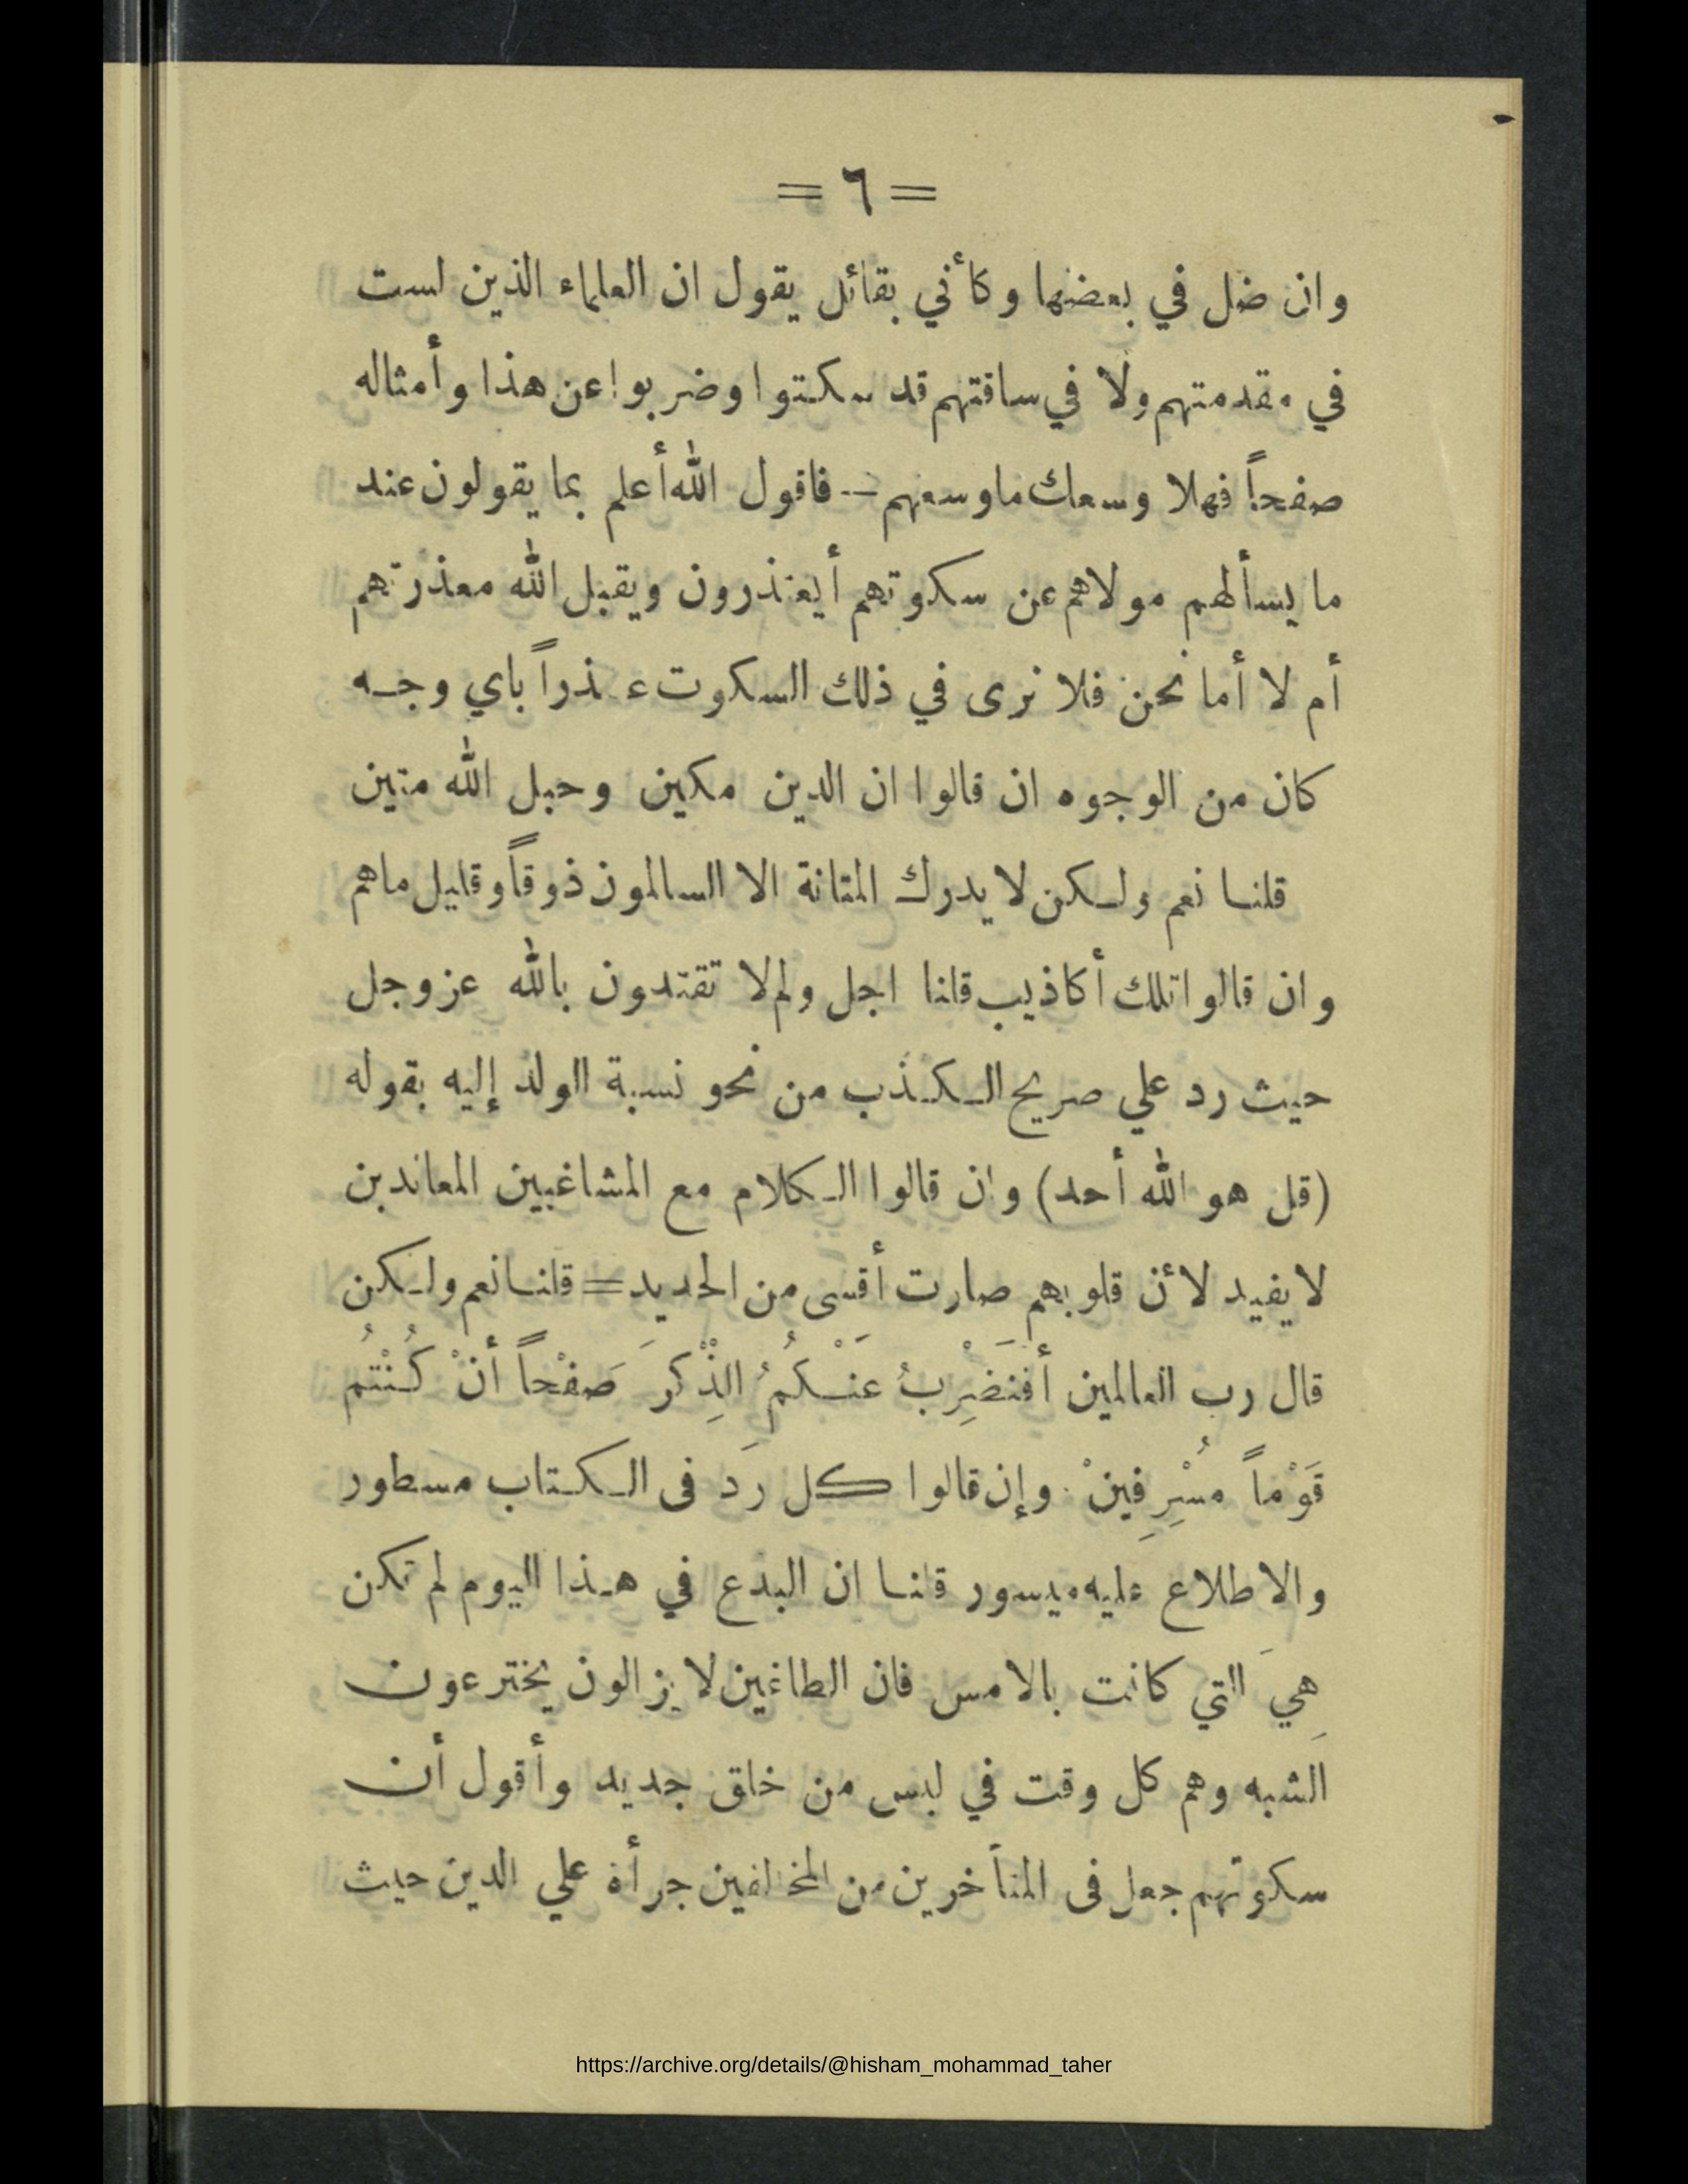 = ٦ =
وان ضل في بعضها وكأني بقائل يقول ان العلماء الذين لست
في مقدمتهم ولا في ساقتهم قد سكتوا وضربوا عن هذا وأمثاله
صفحاً فهلا وسعك ما وسعهم — فاقول الله أعلم بما يقولون عند
ما يسألهم مولاهم عن سكوتهم أيعتذرون ويقبل الله معذرتهم
أم لا أما نحن فلا نرى في ذلك السكوت عذراً باي وجه
كان من الوجوه ان قالوا ان الدين مكين وحبل الله متين
قلنا نعم ولكن لا يدرك المتانة الا السالمون ذوقاً وقليل ما هم
وان قالوا تلك أكاذيب قلنا اجل ولم لا تقتدون بالله عز وجل
حيث رد علي صريح الكذب من نحو نسبة الولد إليه بقوله
(قل هو الله أحد) وان قالوا الكلام مع المشاغبين المعاندين
لا يفيد لأن قلوبهم صارت أقسى من الحديد = قلنا نعم ولكن
قال رب العالمين أَفَنَضْرِبُ عَنْكُمُ الذِّكْرَ صَفْحاً أنْ كُنْتُمْ
قَوْماً مُسْرِفِينْ . وإن قالوا كل رَد فى الكتاب مسطور
والاطلاع عليه ميسور قلنا ان البدع في هذا اليوم لم تكن
هِيَ التي كانت بالامس فان الطاغين لا يزالون يخترعون
الشبه وهم كل وقت في لبس من خلق جديد وأقول أن
سكوتهم جعل فى المتأخرين من المخالفين جرأة علي الدين حيث
https://archive.org/details/@hisham_mohammad_taher